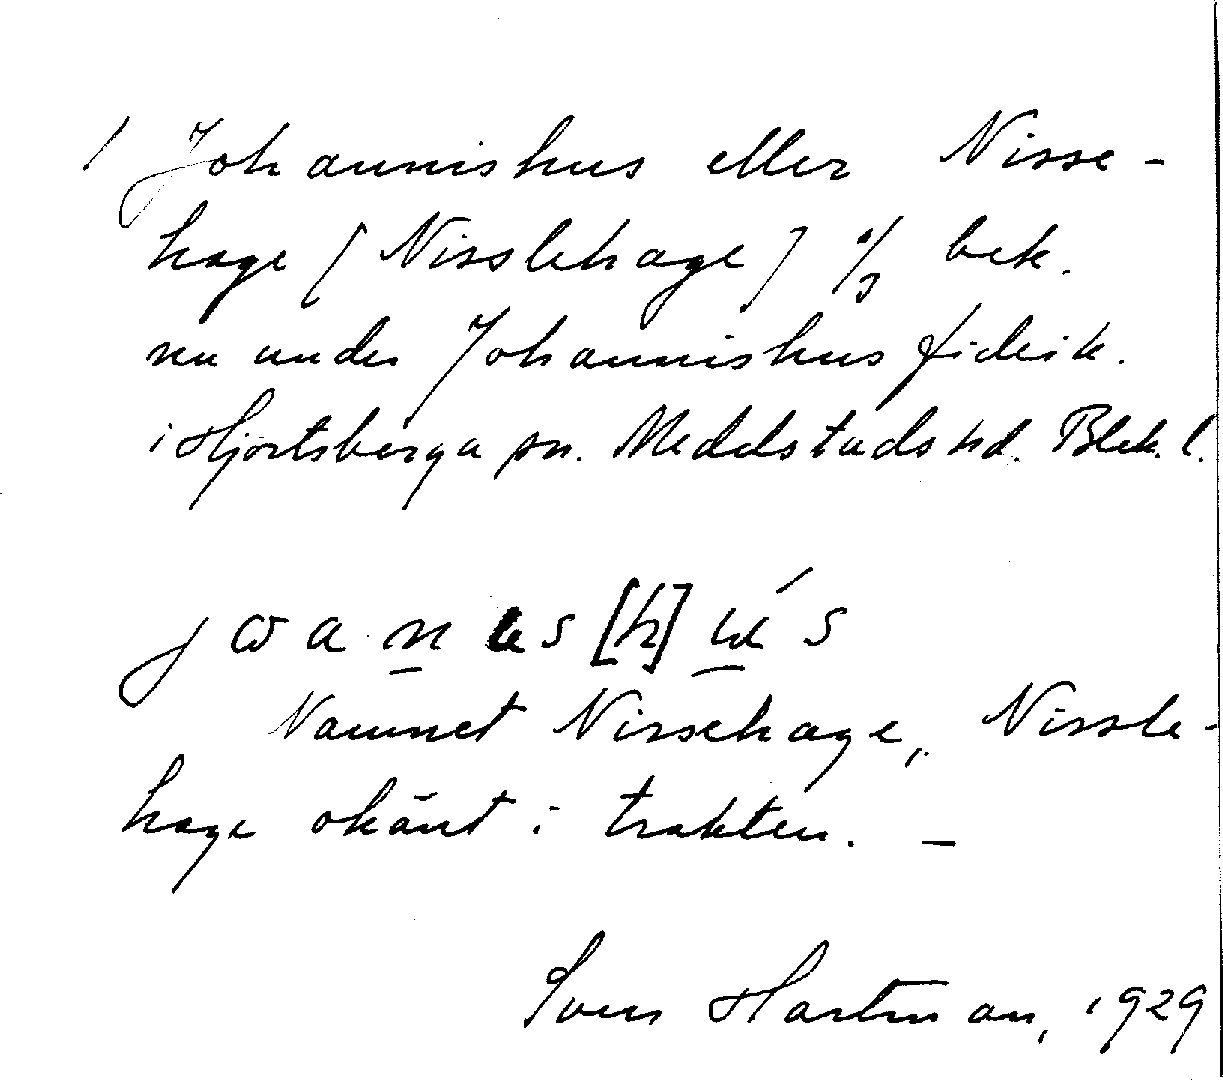 / Johannishus eller Nisse-
hage [Nisslehage] % bek.
nu under Johannishus fideik.
i Hjortsberga sn. Medelstads hd. Blek. l.
jωanɩs[h]ús
Namnet Nissehage, Nissle-
hage okänt i trakten. –
Sven Hartman, 1929